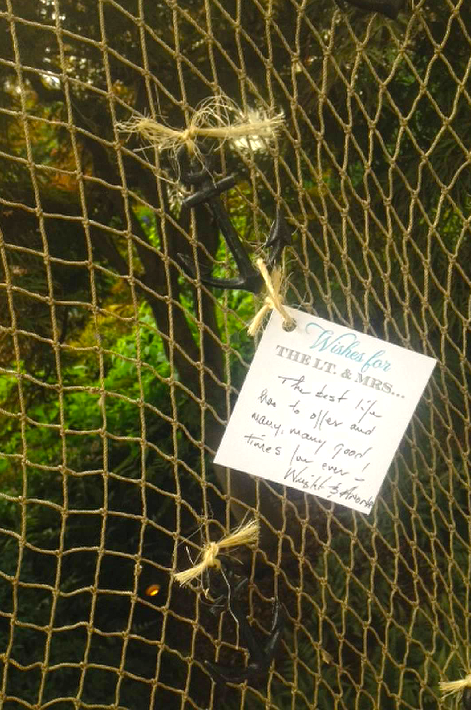 Wishes for
THE LT. & MRS...
The best life
has to offer and
many, many good
times for ever - !
Wright &